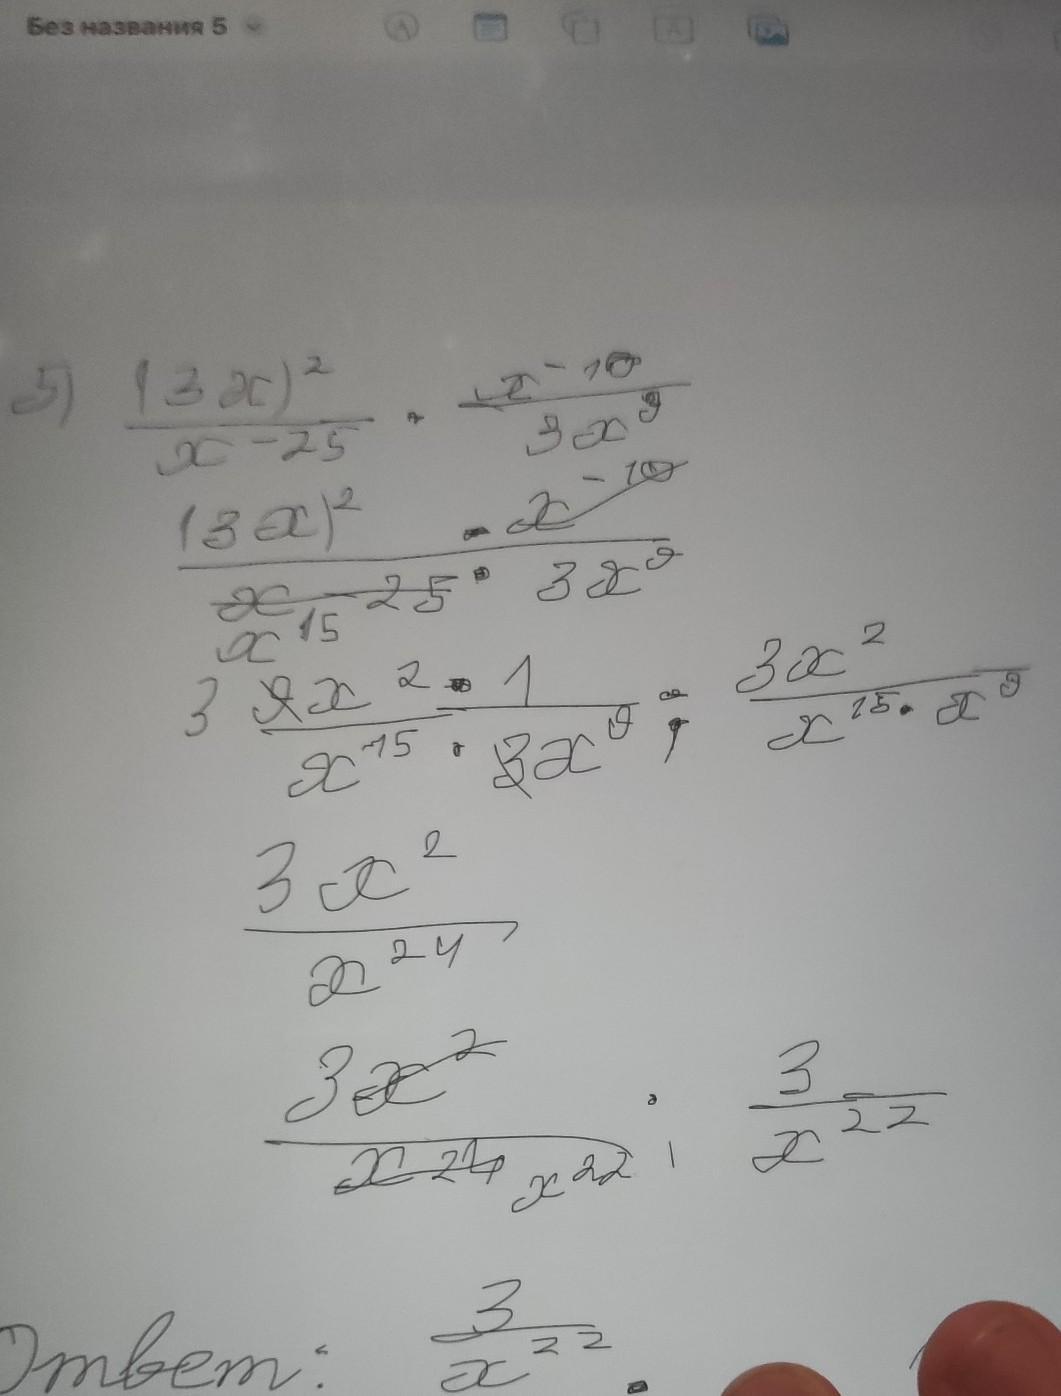 Без названия 5
5) (3x)² / x⁻²⁵ · x⁻¹⁰ / 3x⁹
(3x)² · x⁻¹⁰ / x⁻²⁵ · 3x⁹
x¹⁵
3 9x² · 1 / x⁻¹⁵ · 3x⁹ ; 3x² / x¹⁵ · x⁹
3x² / x²⁴
3x² / x²⁴ x²² ; 3 / x²²
Ответ: 3 / x²².